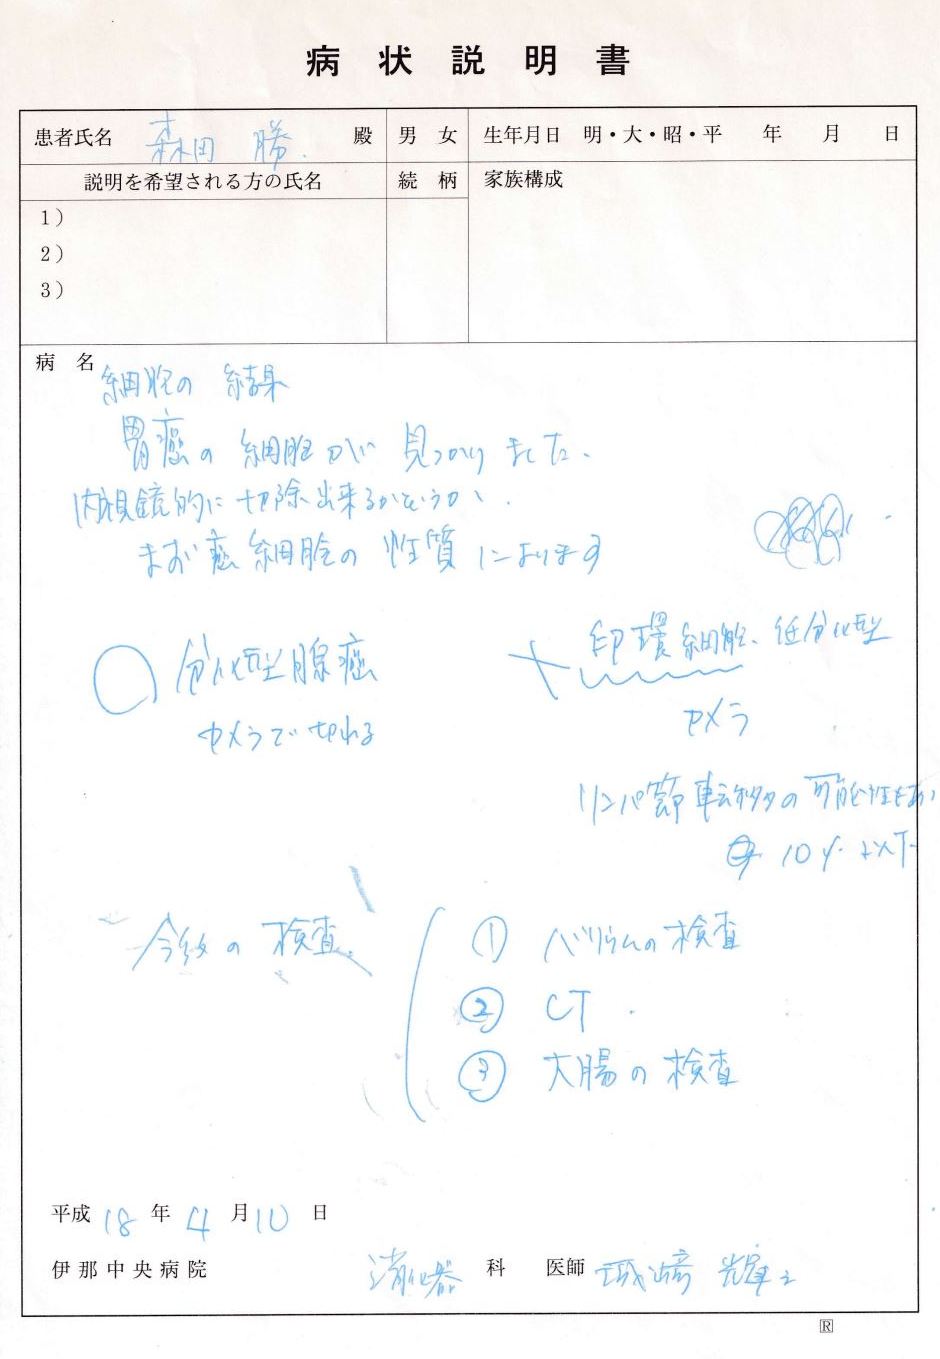 病状説明書
患者氏名 森田 勝 殿 男 女 生年月日 明・大・昭・平 年 月 日
説明を希望される方の氏名 続柄 家族構成
1）
2）
3）
病名
細胞の 結果
胃癌の 細胞がが 見つかりました、
内視鏡的に切除出来るかどうか、
まお 癌細胞の 性質によります
○ 分化型腺癌
カメラで切れる
× 印環細胞、低分化型
カメラ
リンパ節転移の可能性もあり
10% 以下
今後の 検査
① バリウムの検査
② CT
③ 大腸の検査
平成 18 年 4 月 10 日
伊那中央病院 消化器 科 医師
R